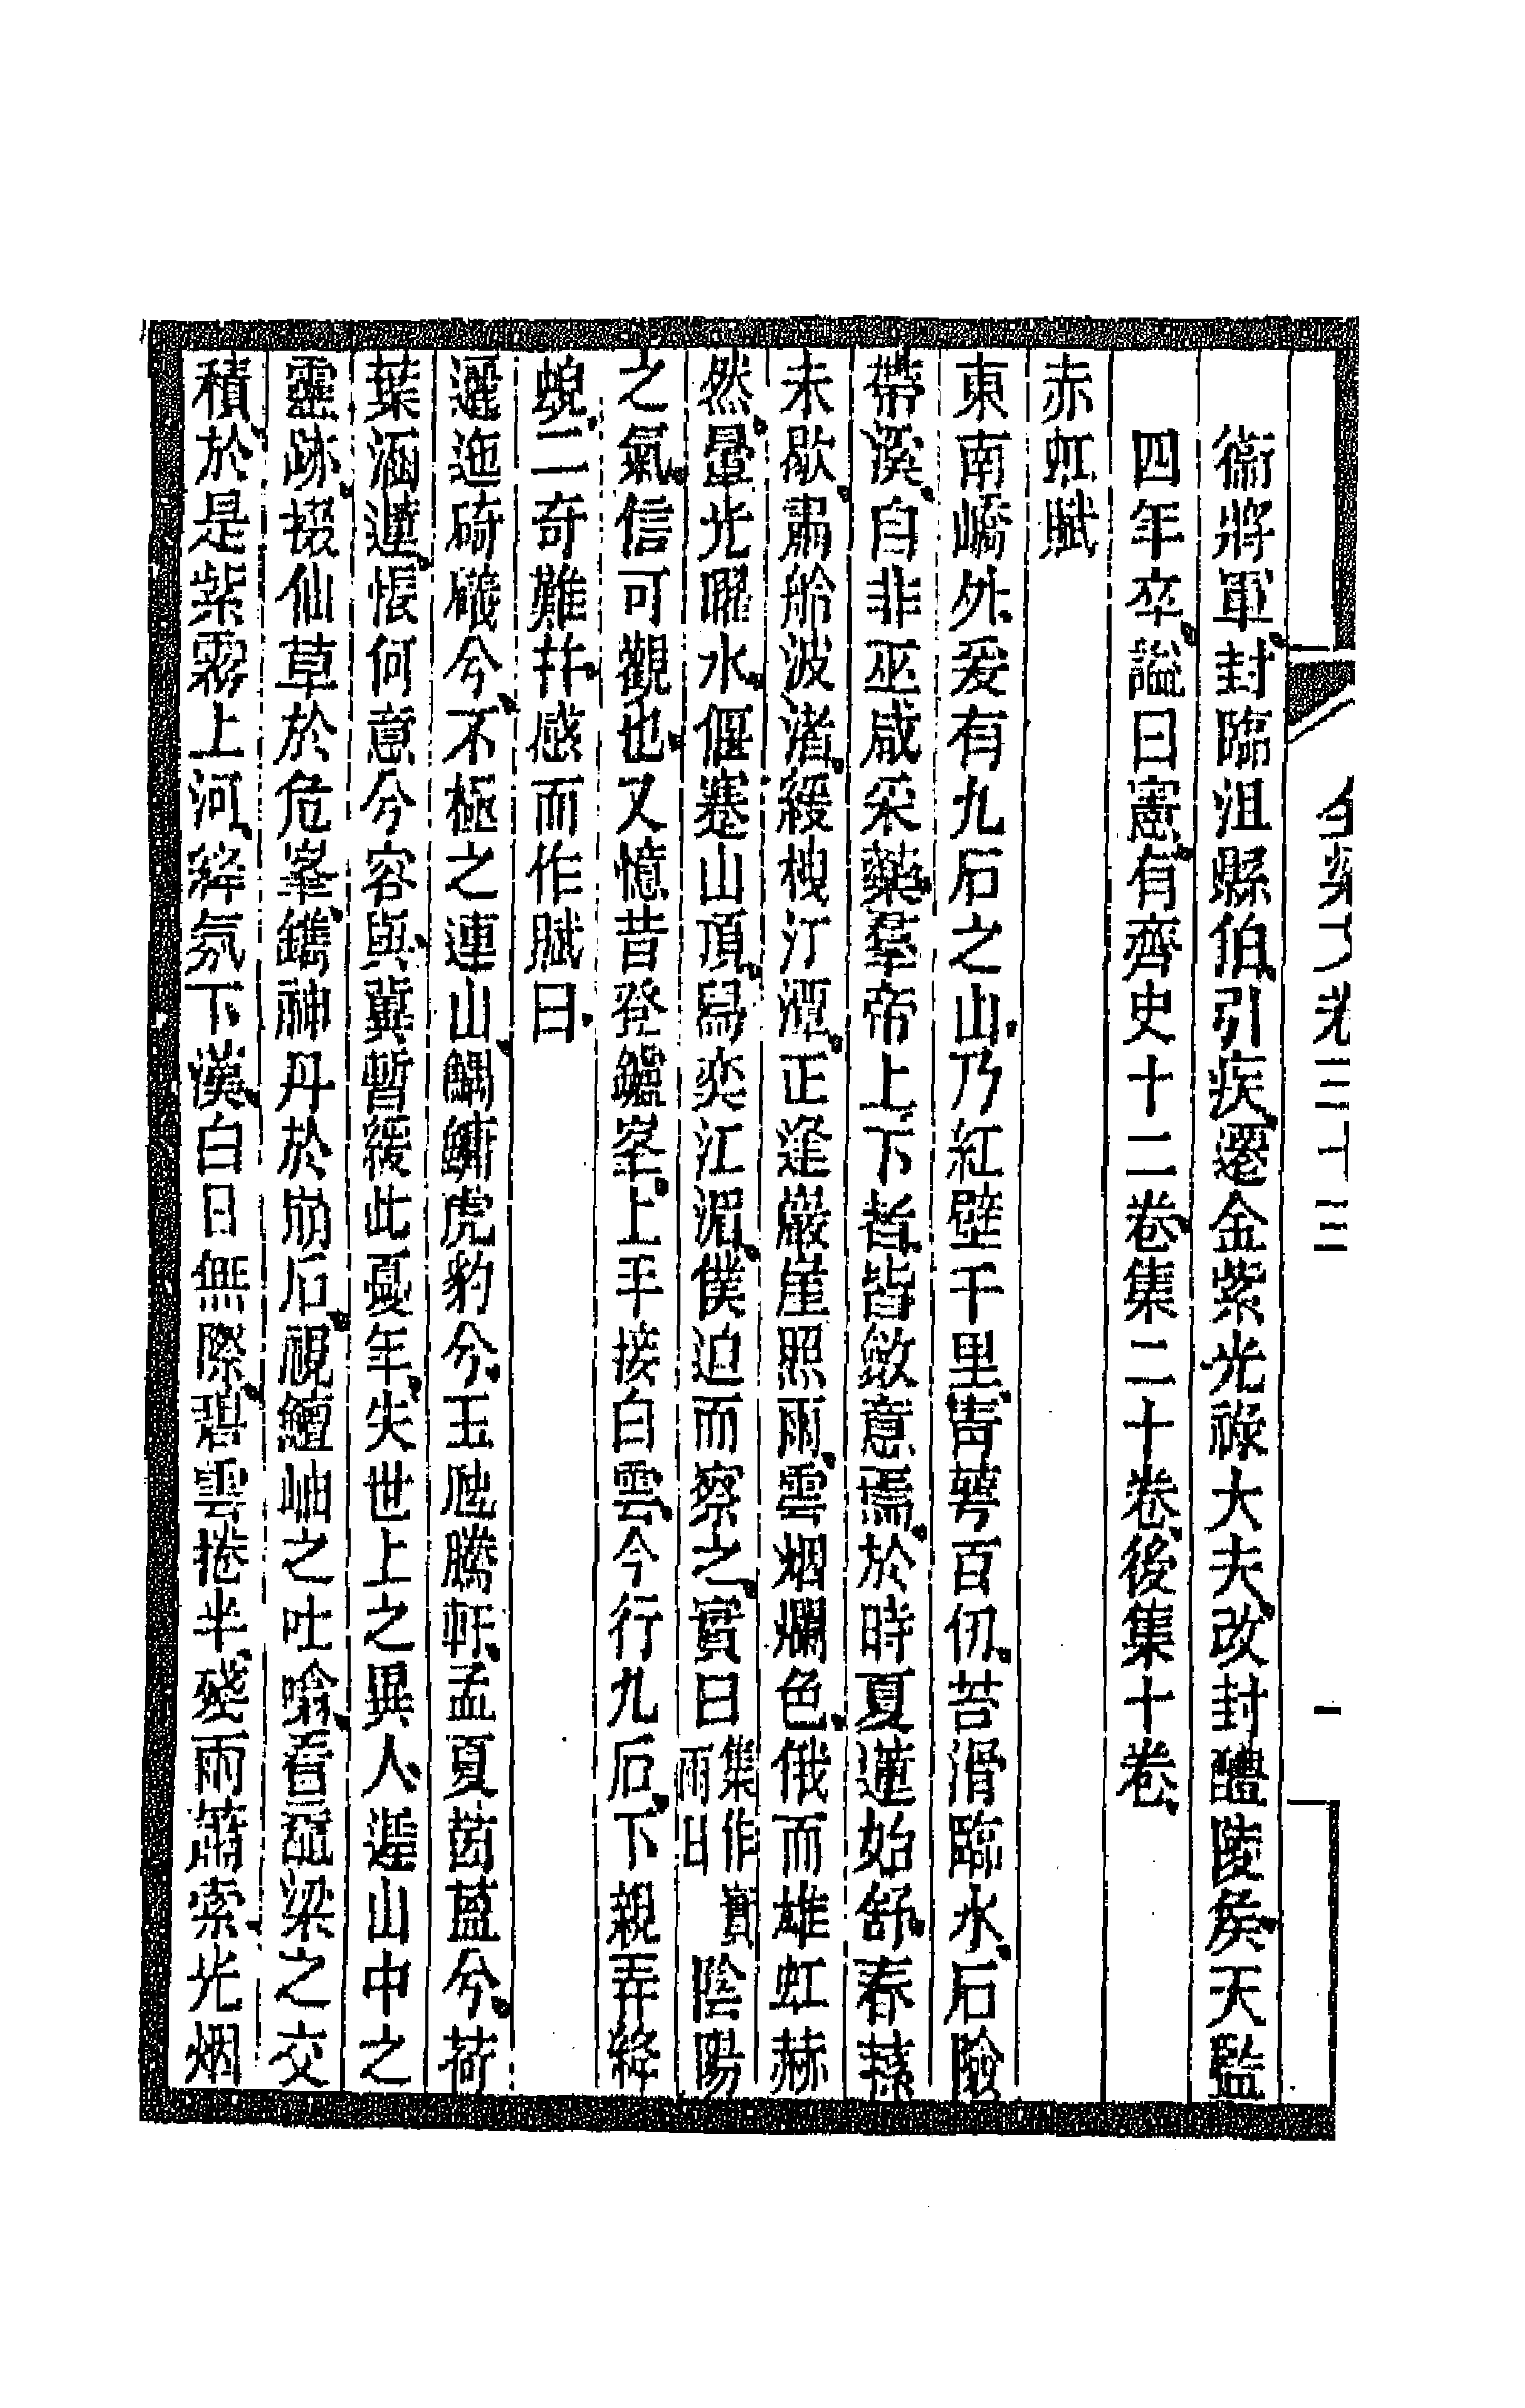 全梁文卷三十三 一
衞將軍封臨沮縣伯引疾遷金紫光祿大夫改封醴陵矦天監
四年卒謚曰憲有齊史十二卷集二十卷後集十卷
赤虹賦
東南嶠外爰有九石之山乃紅壁千里靑萼百仞苔滑臨水石險
帶溪自非巫咸采藥羣帝上下者皆斂意焉於時夏蓮始舒春蓀
未歇肅舲波渚緩栧汀潭正逢巖崖照雨雲烟爛色俄而雄虹赫
然暈光曜水偃蹇山頂舄奕江湄僕迫而察之實曰集作實雨日陰陽
之氣信可觀也又憶昔登鑪峯上手接白雲今行九石下親弄絳
蜺二奇難幷感而作賦曰
邐迤碕礒兮不極之連山鰅鱅虎豹兮玉虺騰軒孟夏茵蒀兮荷
葉涵蓮悵何意兮容與冀暫緩此憂年失世上之異人遲山中之
靈跡掇仙草於危峯鐫神丹於崩石視鱣岫之吐噏看黿梁之交
積於是紫霧上河絳氛下漢白日無際碧雲捲半殘雨蕭索光烟